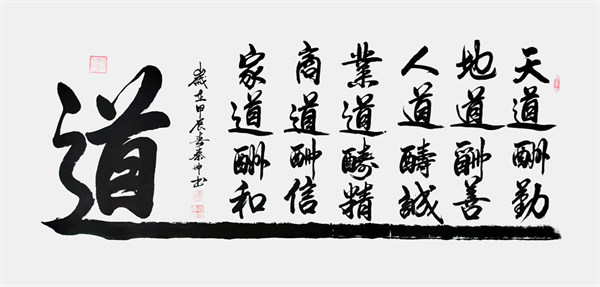 天道酬勤
地道酬善
人道醻誠
業道醻精
商道酬信
家道酬和
歲在甲辰
道